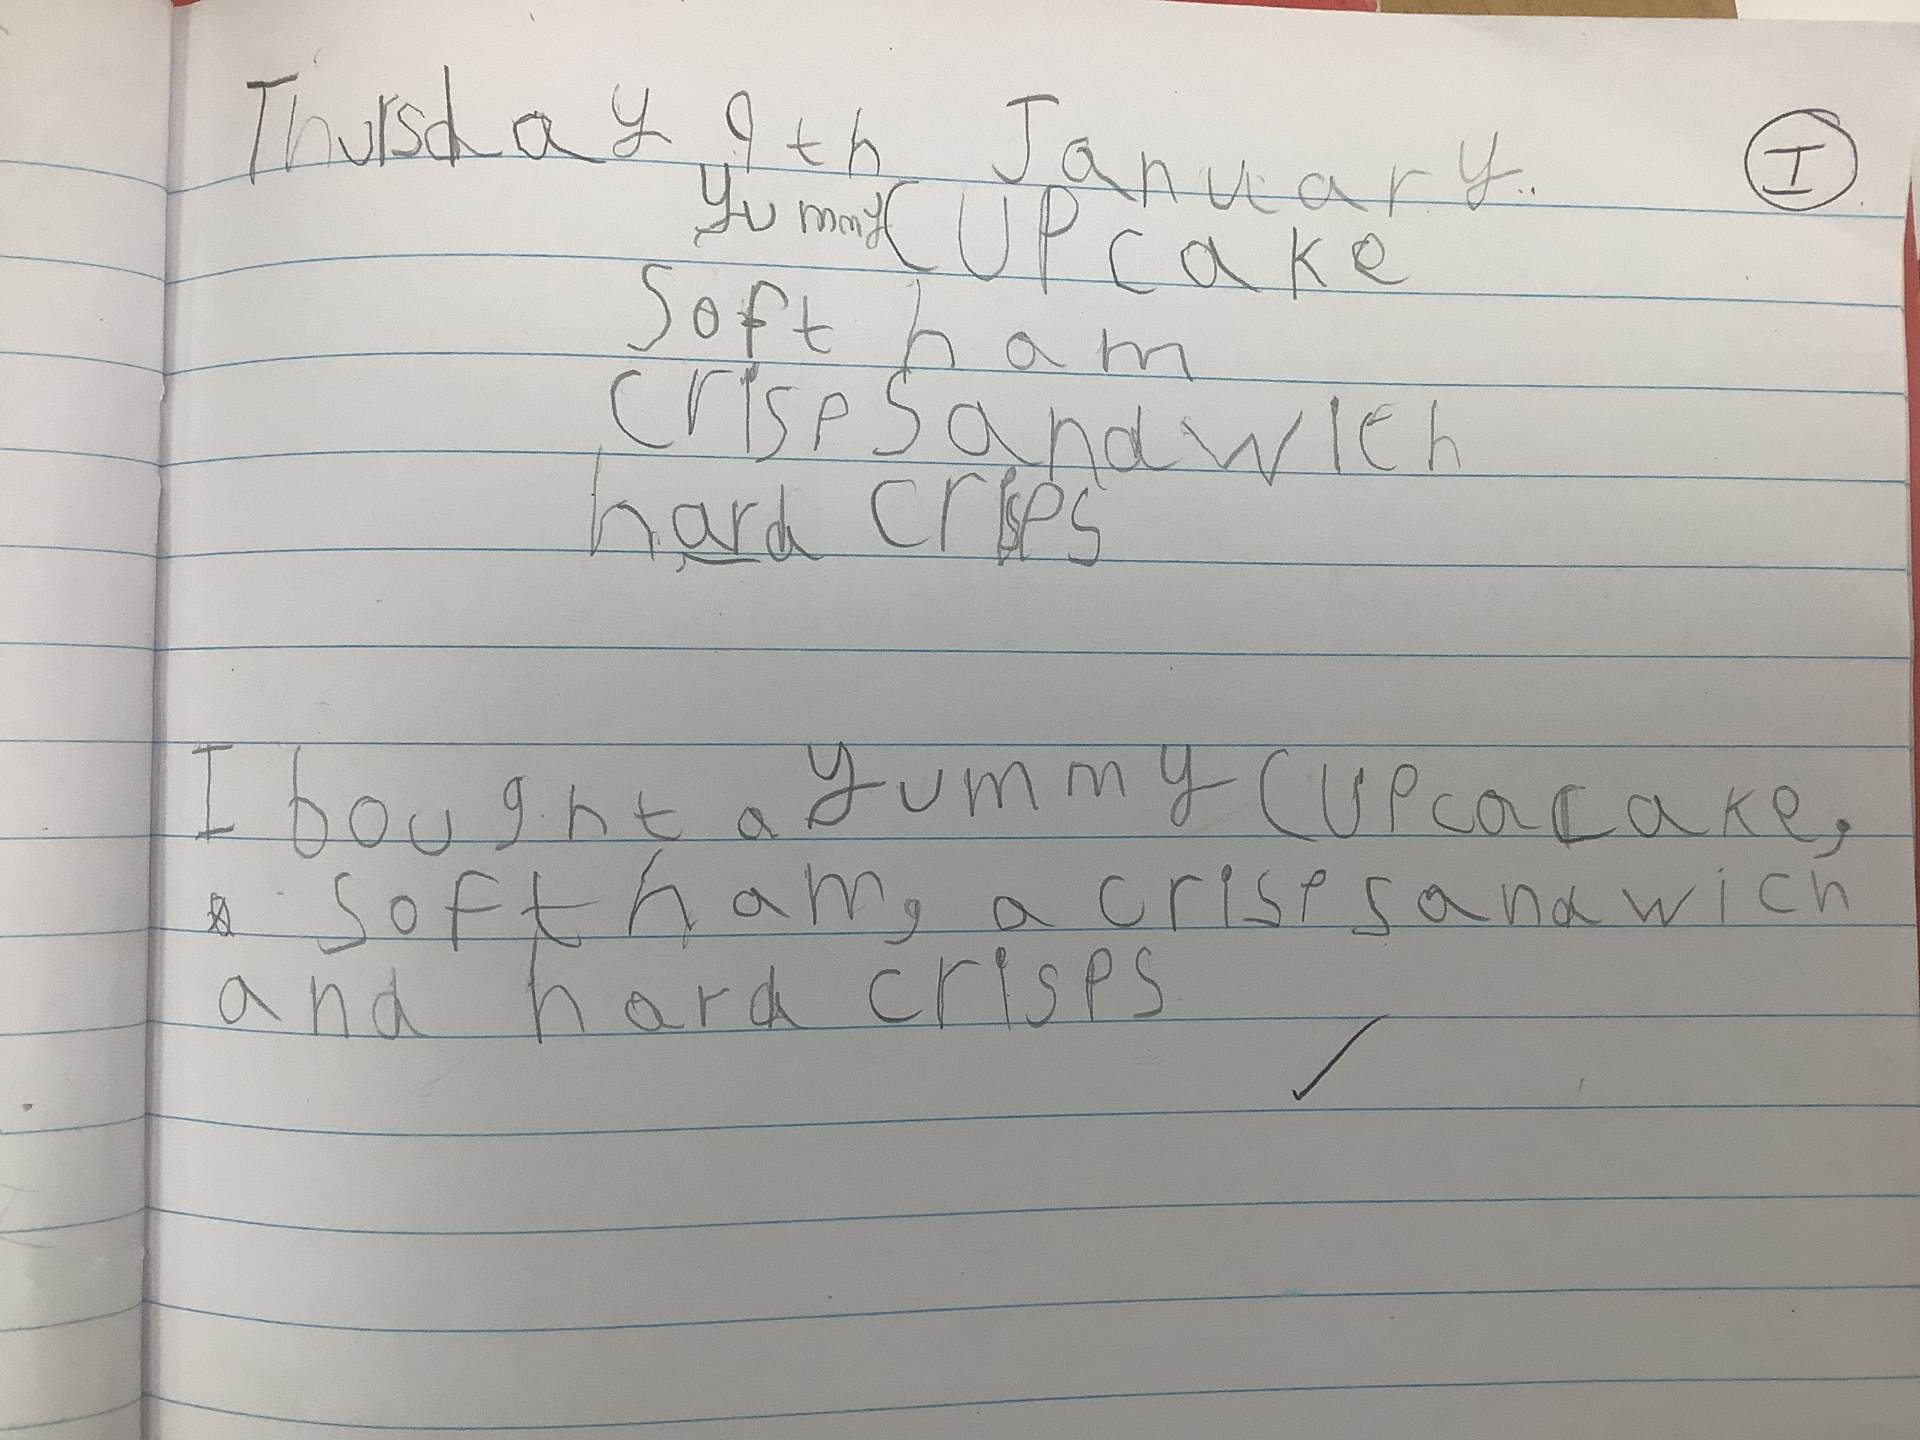 Thursday 9th January.. I
yummy CUPcake
Soft ham
crisp Sandwich
hard crisps
I bought a yummy CUPcacake,
a soft ham, a crisp sandwich
and hard crisps